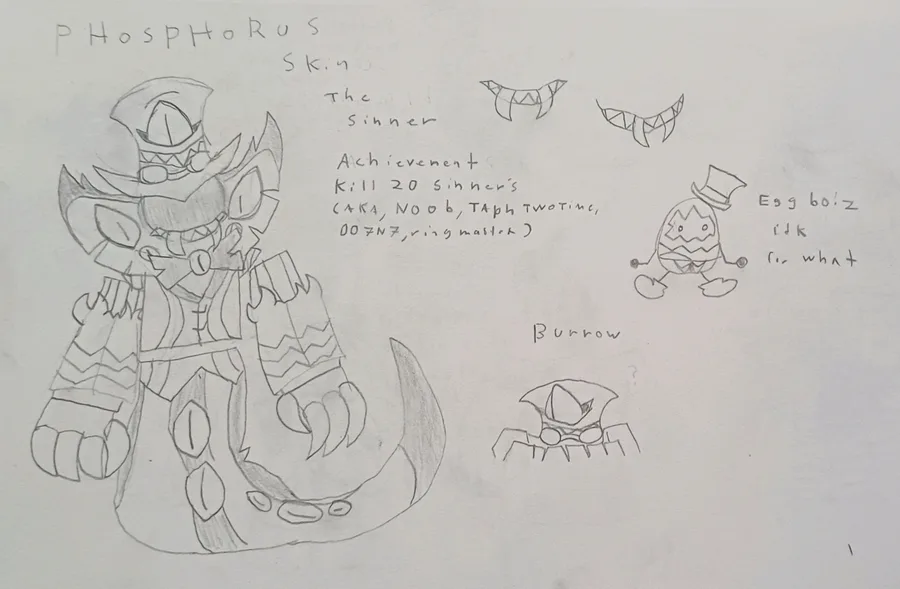 PHOSPHORUS
Skin
The
Sinner
Achievement
Kill 20 Sinner's
(AKA, Noob, TAph TwoTime,
007N7, ringmaster)
Egg boiz
idk
for what
Burrow
?